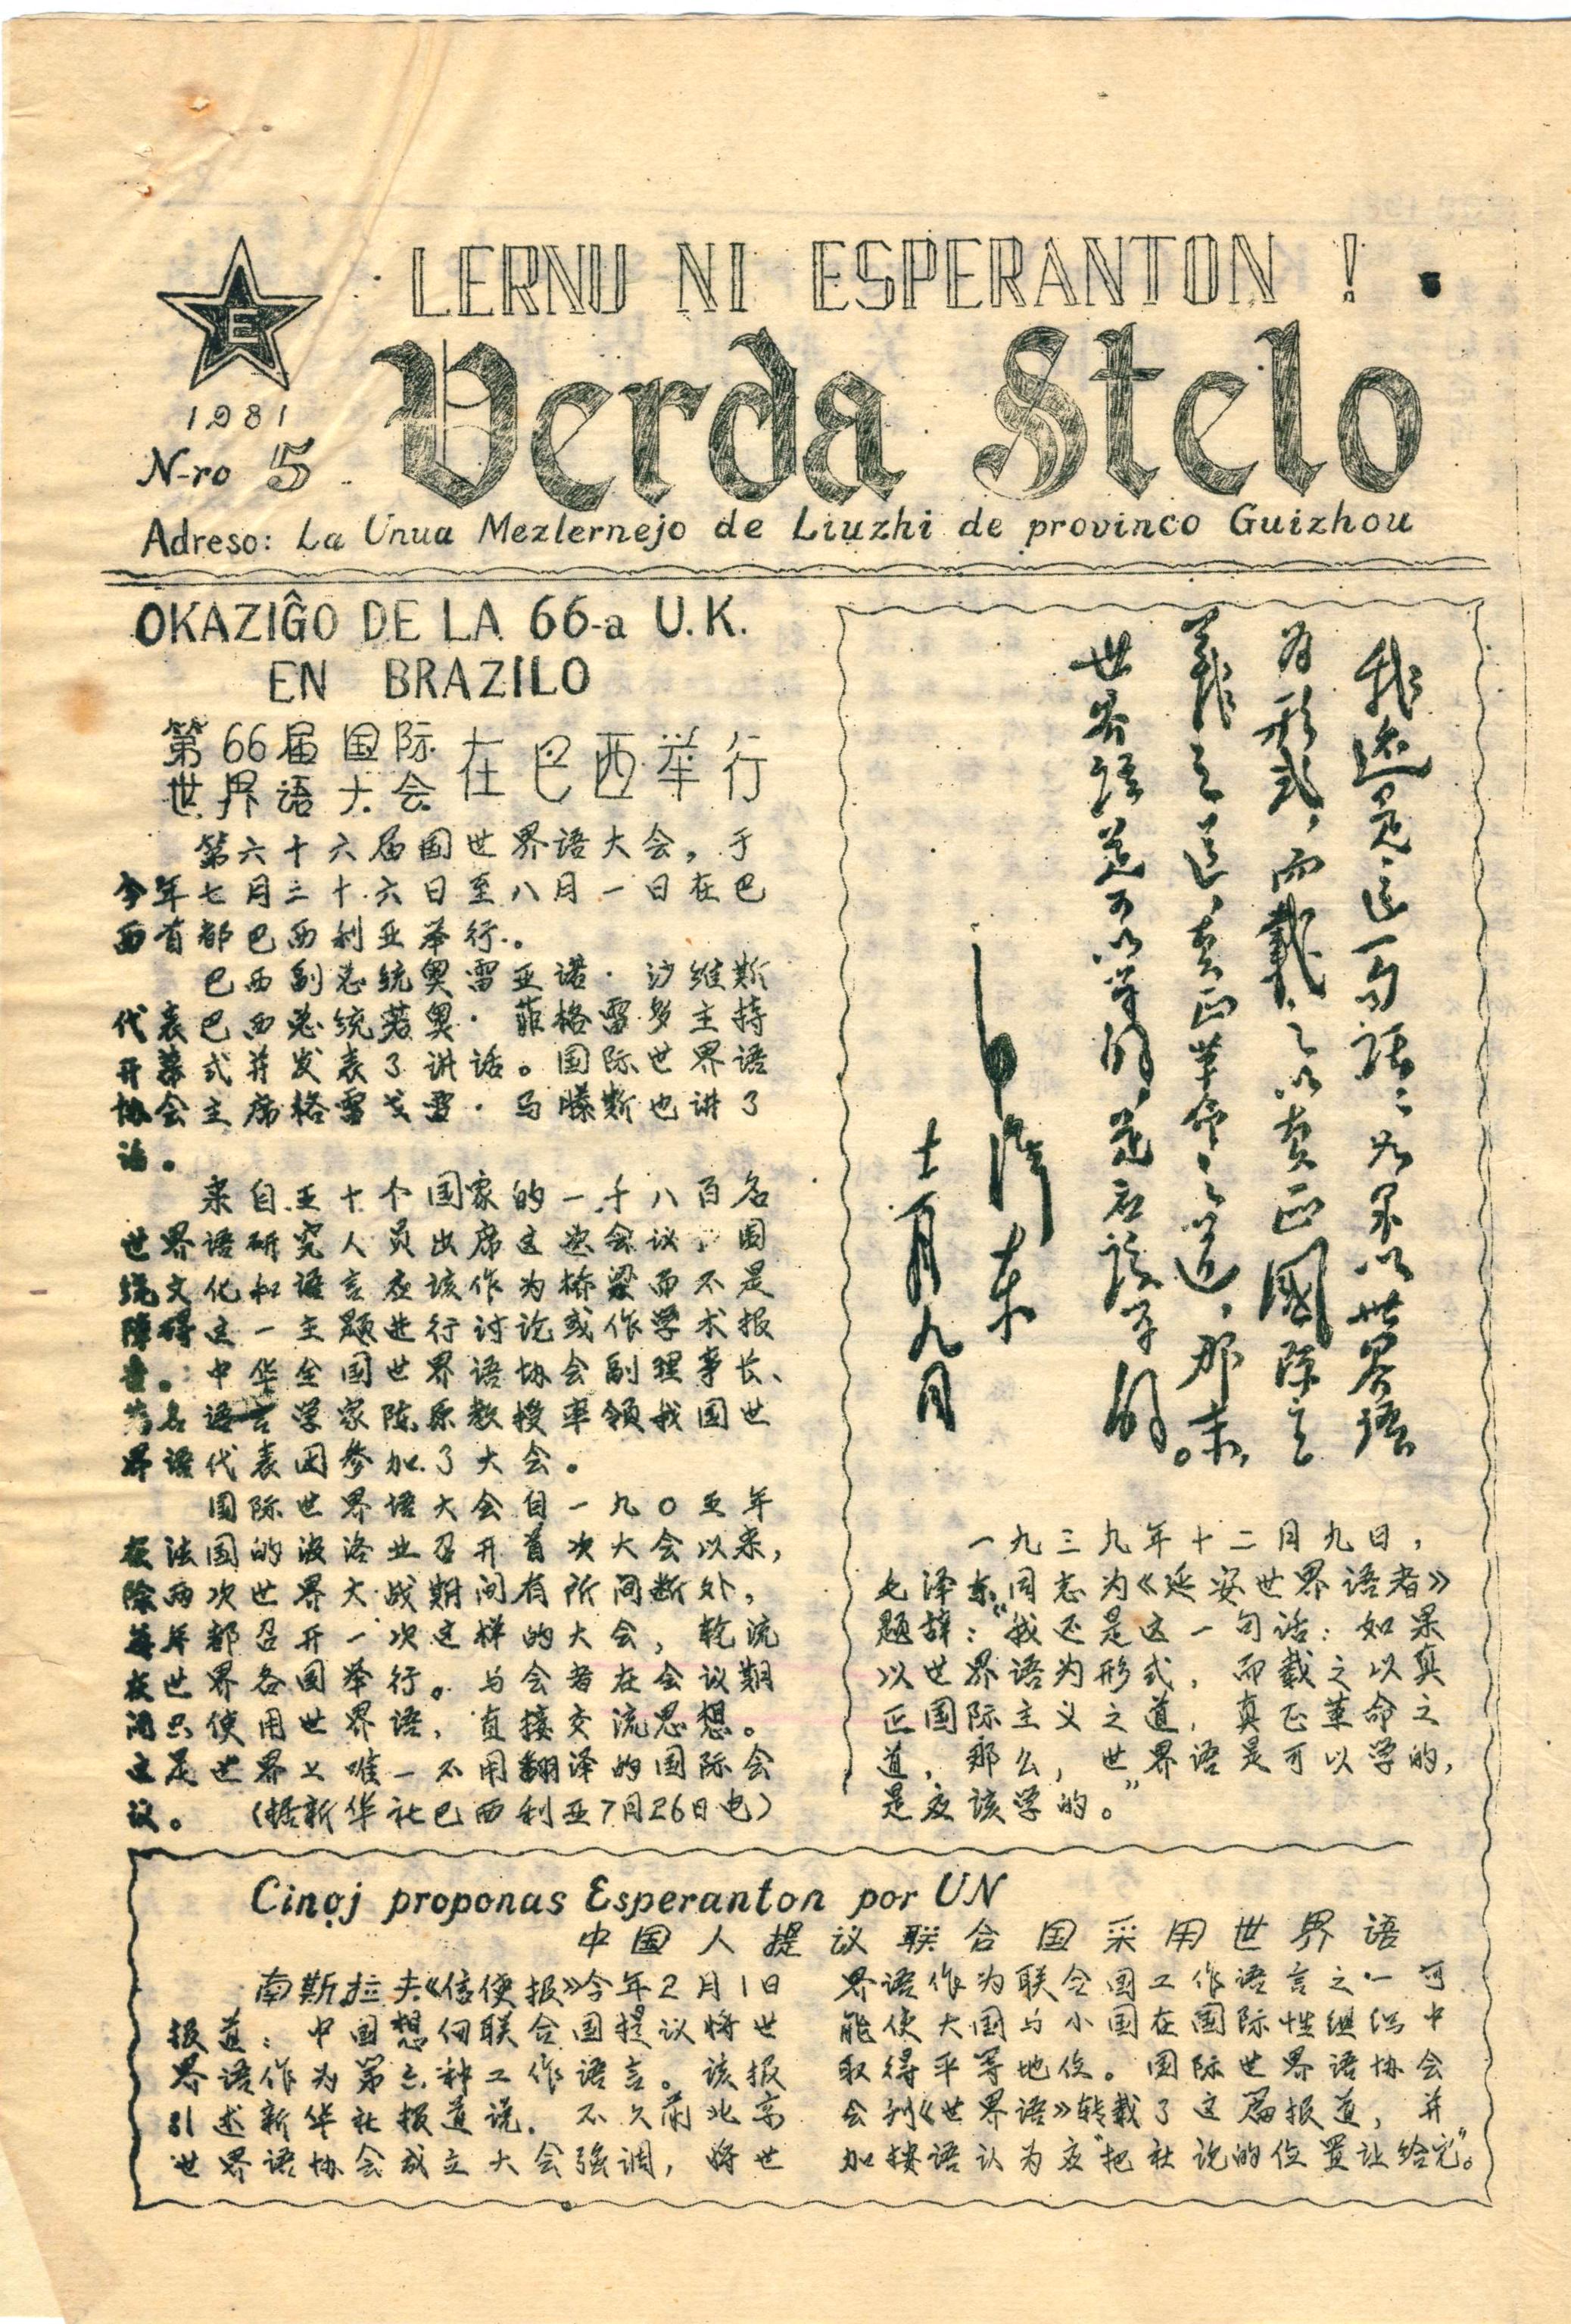 LERNU NI ESPERANTON !
E
1981
N-ro 5
Verda Stelo
Adreso: La Unua Mezlernejo de Liuzhi de provinco Guizhou
OKAZIĜO DE LA 66-a U.K.
EN BRAZILO
第66届国际
世界语大会
在巴西举行
第六十六届国世界语大会，于
今年七月二十六日至八月一日在巴
西首都巴西利亚举行。
巴西副总统奥雷亚诺·沙维斯
代表巴西总统若奥·菲格雷多主持
开幕式并发表了讲话。国际世界语
协会主席格雷戈雷·马滕斯也讲了
话。
来自五十个国家的一千八百名
世界语研究人员出席这次会议，围
绕文化和语言应该作为桥梁而不是
障碍这一主题进行讨论或作学术报
告。中华全国世界语协会副理事长、
著名语言学家陈原教授率领我国世
界语代表团参加了大会。
国际世界语大会自一九〇五年
在法国的波洛业召开首次大会以来，
除两次世界大战期间有所间断外，
每年都召开一次这样的大会，轮流
在世界各国举行。与会者在会议期
间只使用世界语，直接交流思想。
这是世界上唯一不用翻译的国际会
议。（据新华社巴西利亚7月26日电）
我还是这一句话：如果以世界语
为形式，而载之以真正國际主
義之道，真正革命之道，那末，
世界语是可以学的，是应该学的。
毛泽东
十二月九日
一九三九年十二月九日，
毛泽东同志为《延安世界语者》
题辞：“我还是这一句话：如果
以世界语为形式，而载之以真
正国际主义之道，真正革命之
道，那么，世界语是可以学的，
是应该学的。”
Cinoj proponas Esperanton por UN
中国人提议联合国采用世界语
南斯拉夫《信使报》今年2月1日
报道：中国想向联合国提议将世
界语作为第六种工作语言。该报
引述新华社报道说．不久前北京
世界语协会成立大会强调，将世
界语作为联合国工作语言之一可
能使大国与小国在国际性组织中
取得平等地位。国际世界语协会
会刊《世界语》转载了这篇报道，并
加按语认为应“把社论的位置让给它”。